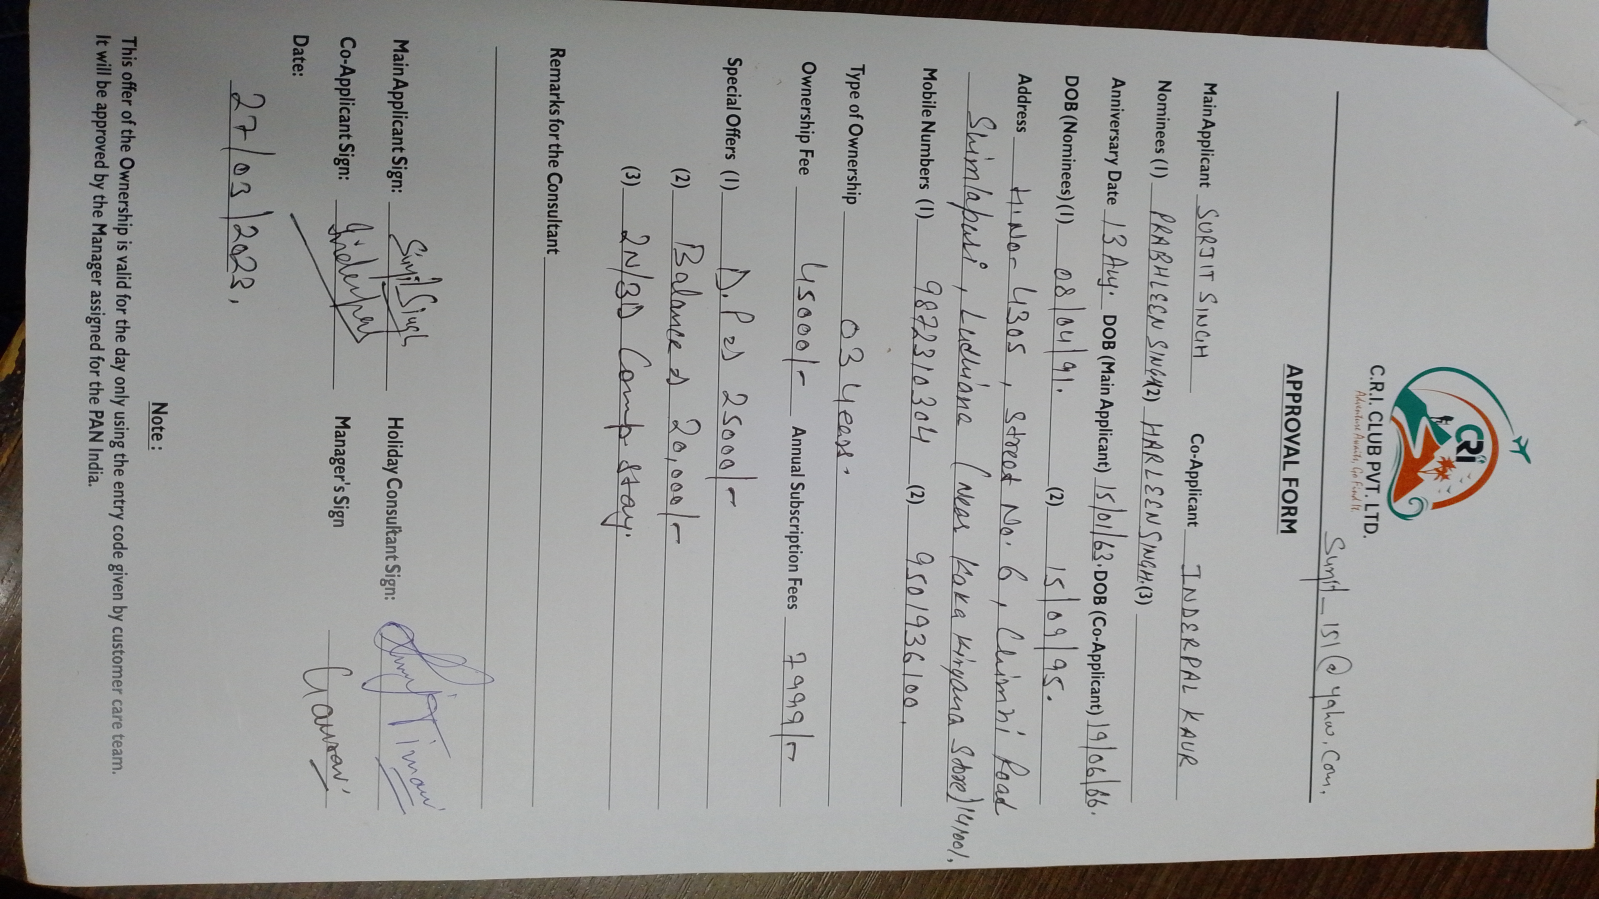 CRI
C.R.I. CLUB PVT. LTD.
Adventure Awaits, Go Find It.
Surjit_151@yahoo.com.
APPROVAL FORM
Main Applicant SURJIT SINGH Co-Applicant INDERPAL KAUR
Nominees (1) PRABHLEEN SINGH (2) HARLEEN SINGH. (3)
Anniversary Date 13 Aug. DOB (Main Applicant) 15/01/63. DOB (Co-Applicant) 19/06/66.
DOB (Nominees) (1) 08/04/91. (2) 15/09/95.
Address H.No- 4305, Street No. 6, Chimni Road
Shimlapuri, Ludhiana (Near Kaka Kiryana Store)
Mobile Numbers (1) 9872310304 (2) 9501936100.
Type of Ownership 03 years.
Ownership Fee 45000/- Annual Subscription Fees 7999/-
Special Offers (1) D.P 25000/-
(2) Balance 20,000/-
(3) 2N/3D Comp stay.
Remarks for the Consultant
Main Applicant Sign: Surjit Singh Holiday Consultant Sign:
Co-Applicant Sign: Inderpal Manager's Sign Gaurav
Date:
27/03/2023.
Note :
This offer of the Ownership is valid for the day only using the entry code given by customer care team.
It will be approved by the Manager assigned for the PAN India.